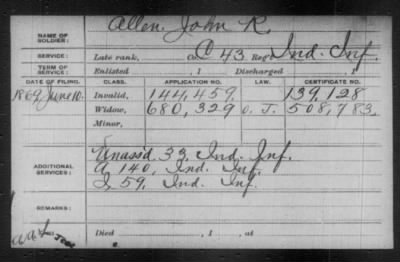 Allen, John R.
NAME OF SOLDIER:
SERVICE: Late rank, Co. C 43 Reg. Ind. Inf.
TERM OF SERVICE: Enlisted , 1 Discharged , 1
DATE OF FILING. CLASS. APPLICATION NO. LAW. CERTIFICATE NO.
1869, June 10. Invalid, 144,459. 139,128
Widow, 680,329 O. J. 508,783
Minor,
ADDITIONAL SERVICES:
Unassd. 33, Ind. Inf.
A 140, Ind. Inf.
I 59, Ind. Inf.
REMARKS:
Died , 1 , at